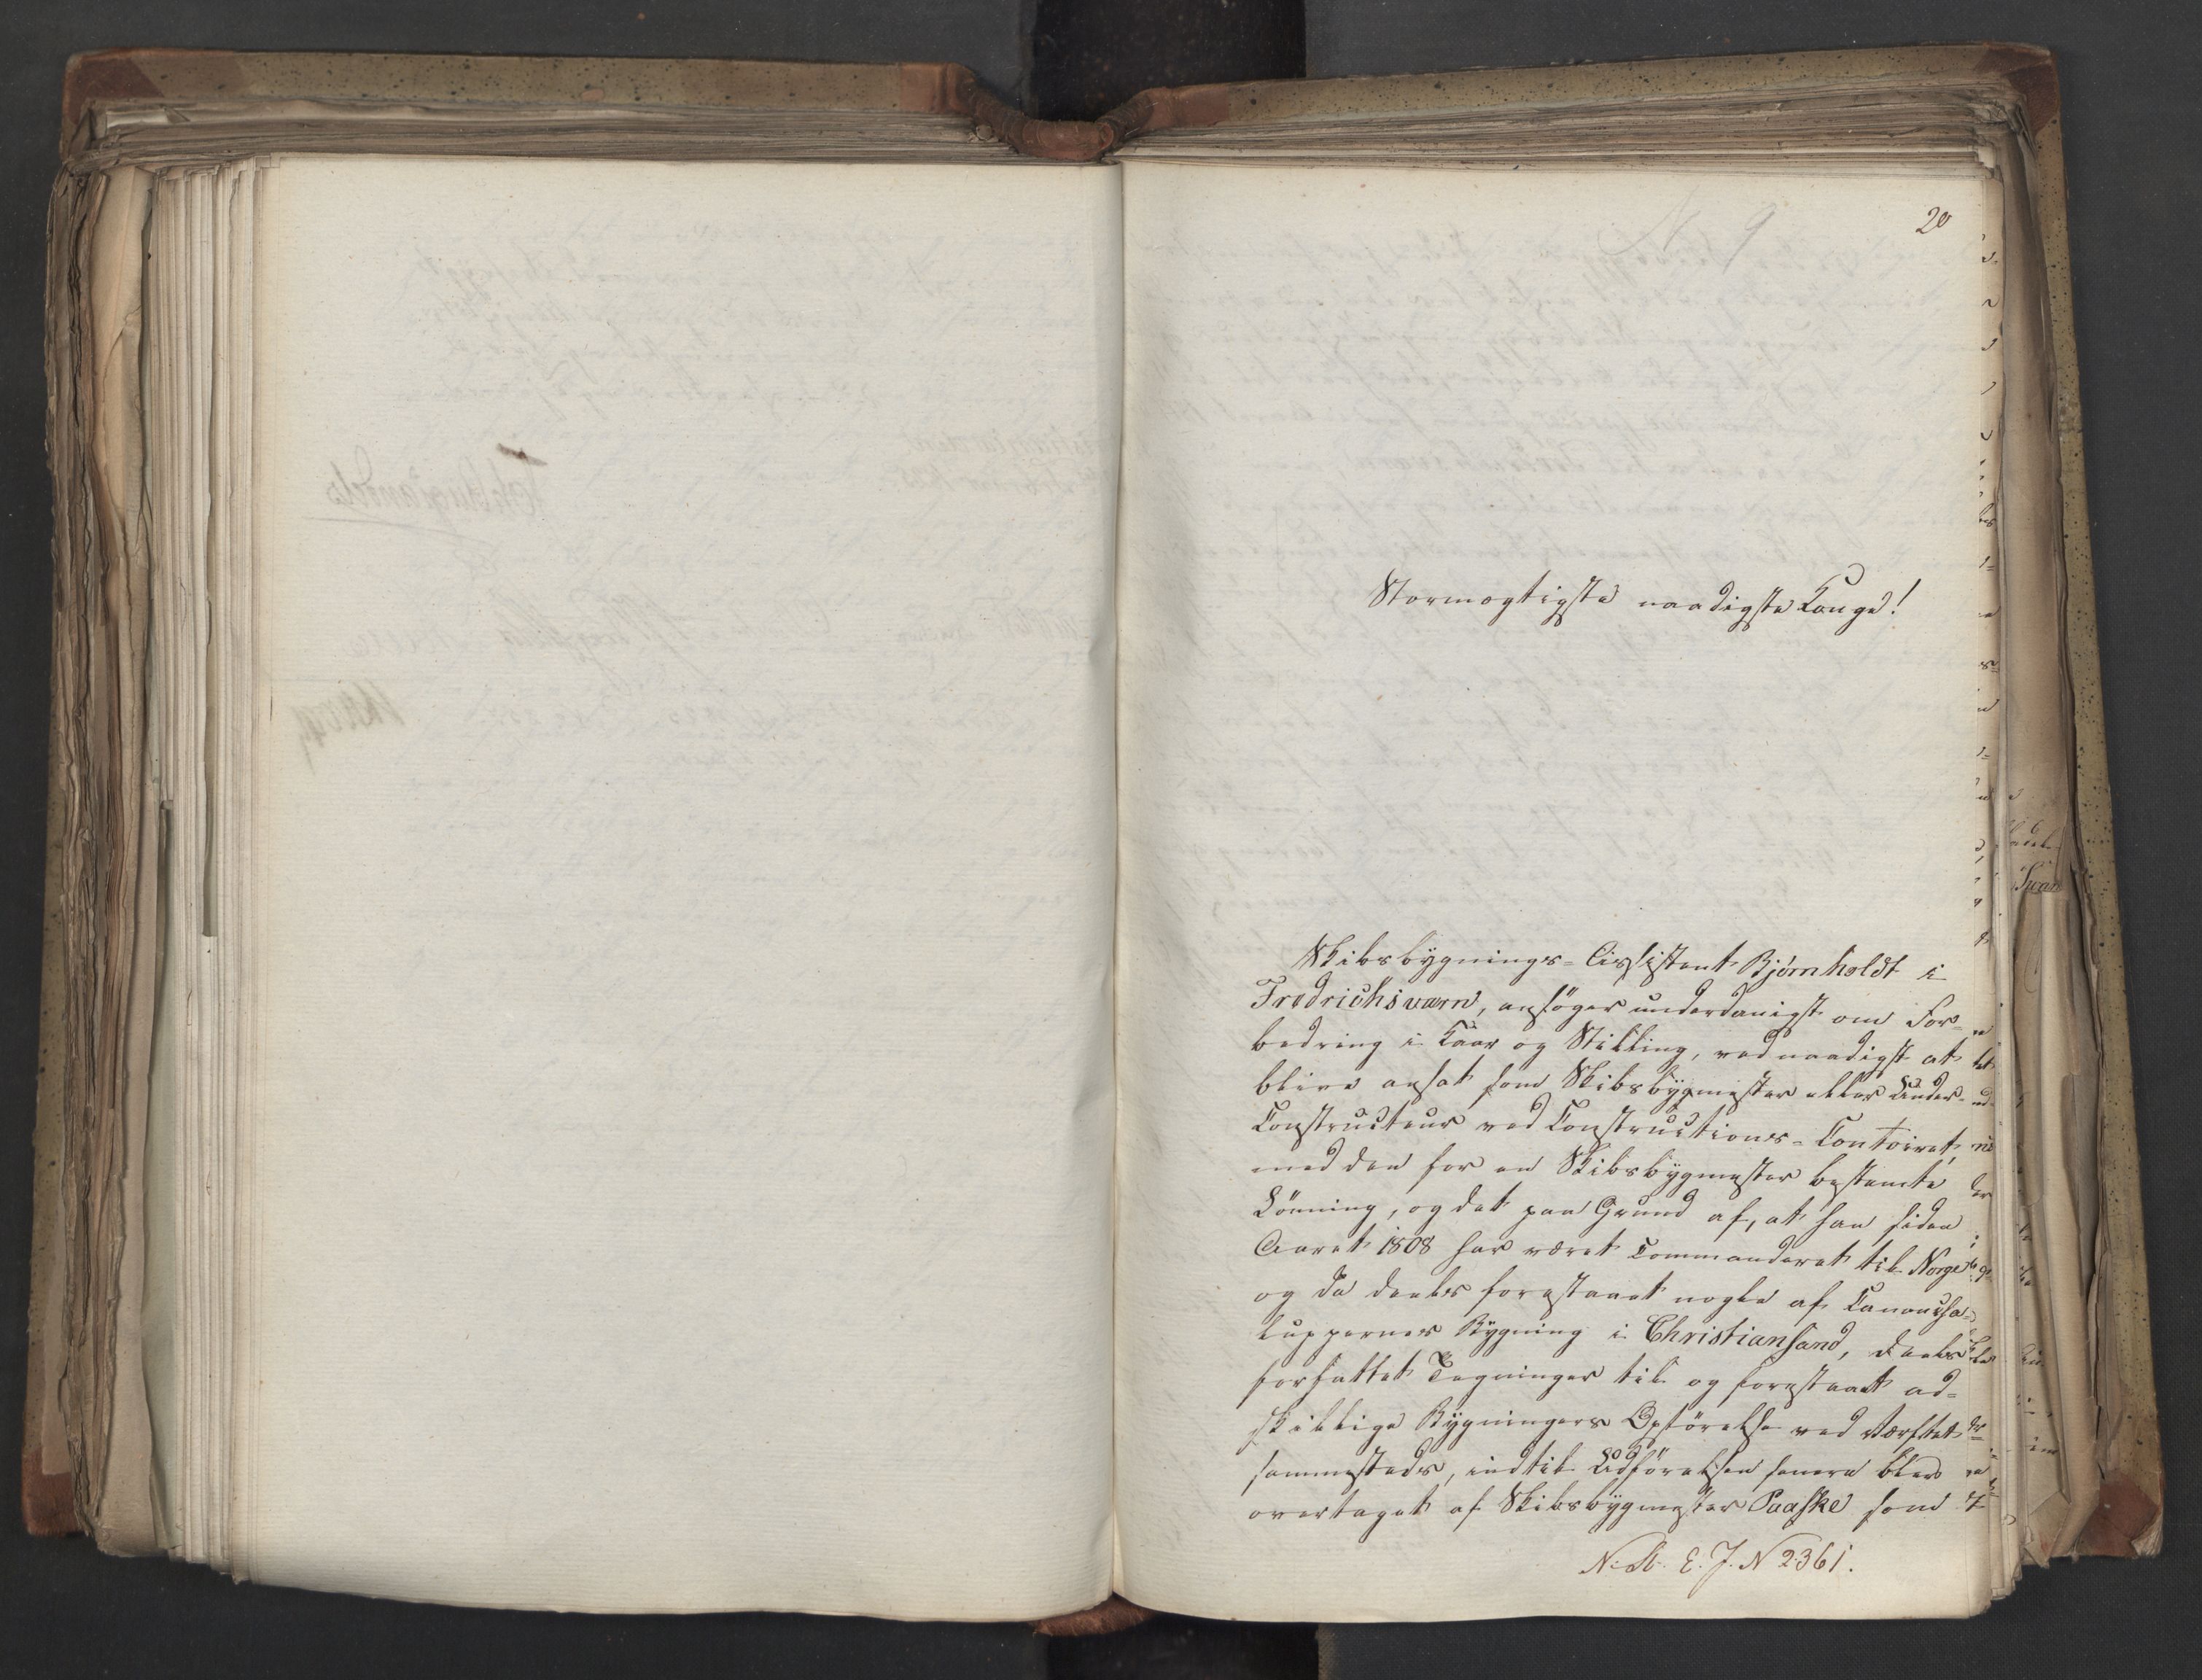 N 9
20
Stormægtigste naadigste Konge!
Skibsbygnings-Assistent Bjørnholdt i
Fredrichsværn, ansøger underdanigst om For-
bedring i Kaar og Stilling, ved naadigst at
blive ansat som Skibsbygmester eller Under-
Constructeur ved Constructions-Contoiret,
med den for en Skibsbygmester bestemte
Lønning, og det paa Grund af, at han siden
Aaret 1808 har været Commanderet til Norge
og da deels forestaaet nogle af Canoncha-
luppernes Bygning i Christiansand, deels
forfattet Tegninger til og forestaaet ad-
skillige Bygningers Opførelse ved Værftet
sammesteds, indtil Udførelsen senere blev
overtaget af Skibsbygmester Paaske som
E. J. N 2361.